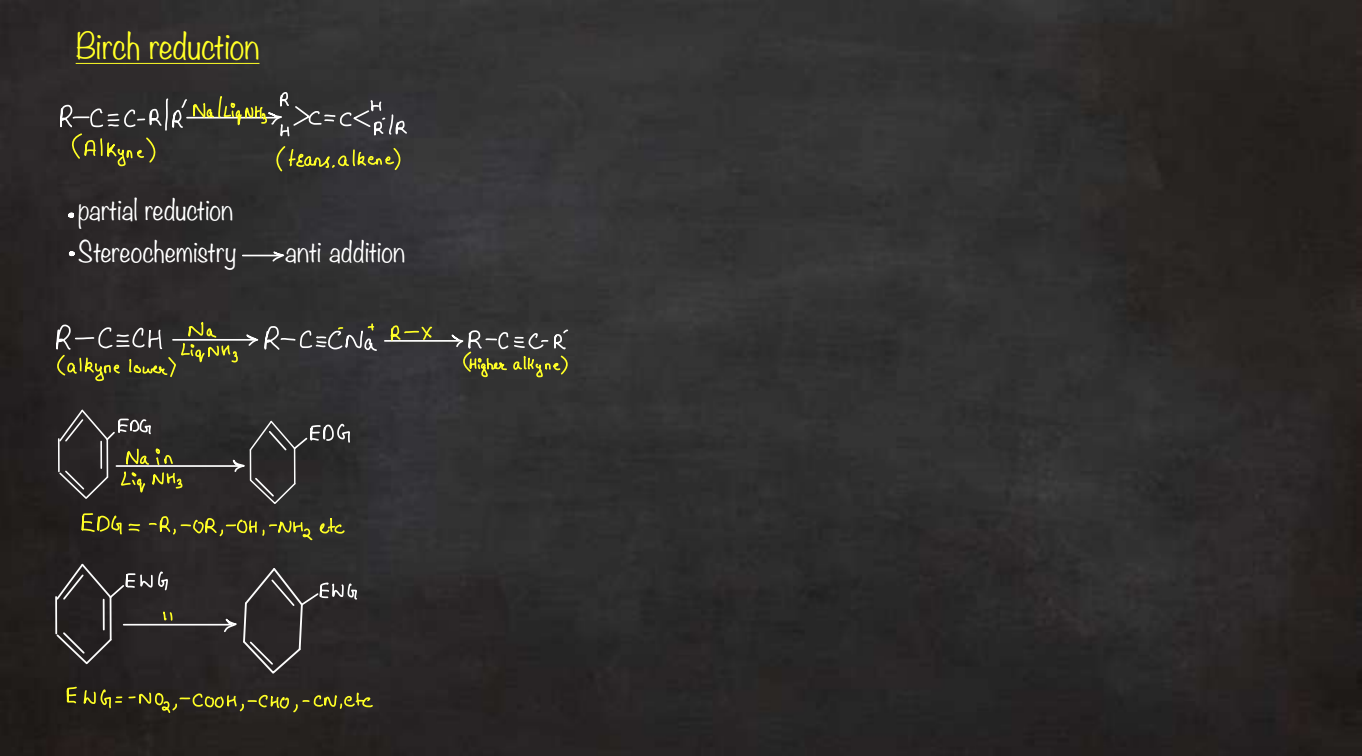 Birch reduction
R-C≡C-R/R' Na/Liq NH₃ → R H >C=C< H R'/R
(Alkyne) (trans.alkene)
•partial reduction
•Stereochemistry → anti addition
R-C≡CH Na Liq NH₃ → R-C≡C⁻Na⁺ R-X → R-C≡C-R'
(alkyne lower) (Higher alkyne)
EDG Na in Liq NH₃ → EDG
EDG = -R, -OR, -OH, -NH₂ etc
EWG " → EWG
EWG = -NO₂, -COOH, -CHO, -CN, etc